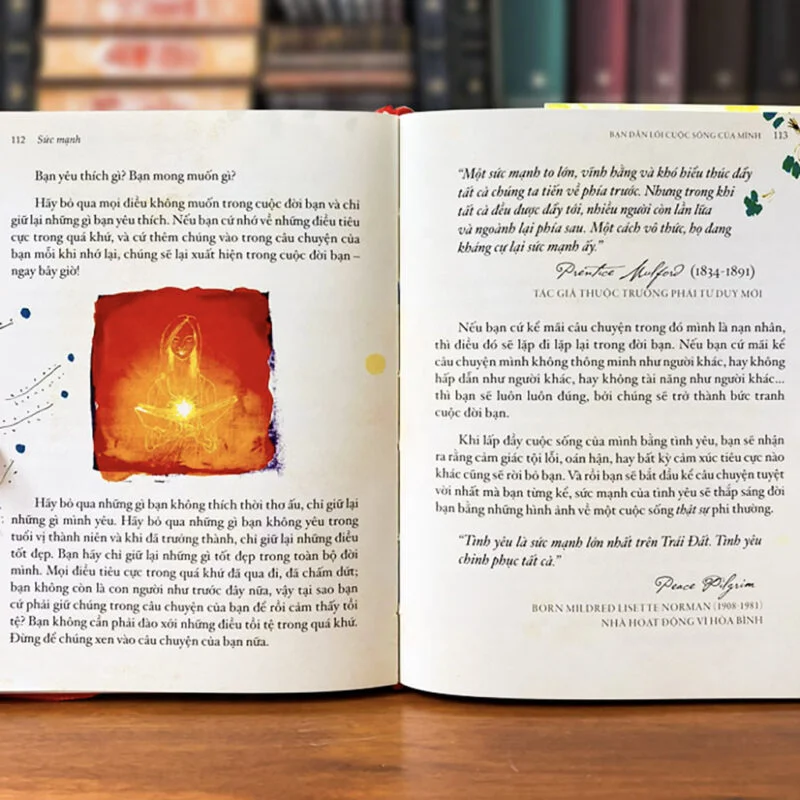 112 Sức mạnh
Bạn yêu thích gì? Bạn mong muốn gì?
Hãy bỏ qua mọi điều không muốn trong cuộc đời bạn và chỉ
giữ lại những gì bạn yêu thích. Nếu bạn cứ nhớ về những điều tiêu
cực trong quá khứ, và cứ thêm chúng vào trong câu chuyện của
bạn mỗi khi nhớ lại, chúng sẽ lại xuất hiện trong cuộc đời bạn –
ngay bây giờ!
Hãy bỏ qua những gì bạn không thích thời thơ ấu, chỉ giữ lại
những gì mình yêu. Hãy bỏ qua những gì bạn không yêu trong
tuổi vị thành niên và khi đã trưởng thành, chỉ giữ lại những điều
tốt đẹp. Bạn hãy chỉ giữ lại những gì tốt đẹp trong toàn bộ đời
mình. Mọi điều tiêu cực trong quá khứ đã qua đi, đã chấm dứt;
bạn không còn là con người như trước đây nữa, vậy tại sao bạn
cứ phải giữ chúng trong câu chuyện của bạn để rồi cảm thấy tồi
tệ? Bạn không cần phải đào xới những điều tồi tệ trong quá khứ.
Đừng để chúng xen vào câu chuyện của bạn nữa.
BẠN DẪN LỐI CUỘC SỐNG CỦA MÌNH 113
“Một sức mạnh to lớn, vĩnh hằng và khó hiểu thúc đẩy
tất cả chúng ta tiến về phía trước. Nhưng trong khi
tất cả đều được đẩy tới, nhiều người còn lần lữa
và ngoảnh lại phía sau. Một cách vô thức, họ đang
kháng cự lại sức mạnh ấy.”
Prentice Mulford (1834-1891)
TÁC GIẢ THUỘC TRƯỜNG PHÁI TƯ DUY MỚI
Nếu bạn cứ kể mãi câu chuyện trong đó mình là nạn nhân,
thì điều đó sẽ lặp đi lặp lại trong đời bạn. Nếu bạn cứ mãi kể
câu chuyện mình không thông minh như người khác, hay không
hấp dẫn như người khác, hay không tài năng như người khác...
thì bạn sẽ luôn luôn đúng, bởi chúng sẽ trở thành bức tranh
cuộc đời bạn.
Khi lấp đầy cuộc sống của mình bằng tình yêu, bạn sẽ nhận
ra rằng cảm giác tội lỗi, oán hận, hay bất kỳ cảm xúc tiêu cực nào
khác cũng sẽ rời bỏ bạn. Và rồi bạn sẽ bắt đầu kể câu chuyện tuyệt
vời nhất mà bạn từng kể, sức mạnh của tình yêu sẽ thắp sáng đời
bạn bằng những hình ảnh về một cuộc sống thật sự phi thường.
“Tình yêu là sức mạnh lớn nhất trên Trái Đất. Tình yêu
chinh phục tất cả.”
Peace Pilgrim
BORN MILDRED LISETTE NORMAN (1908-1981)
NHÀ HOẠT ĐỘNG VÌ HÒA BÌNH